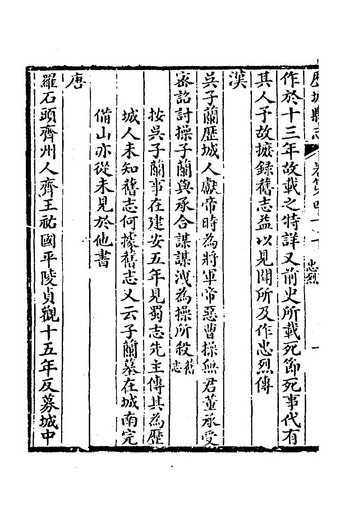 歷城縣志　卷第四十　忠烈　一
作於十三年故載之特詳又前史所載死節死事代有
其人予故摭録舊志益以見聞所及作忠烈傳
漢
吳子蘭歷城人獻帝時為將軍帝惡曹操無君董承受
密詔討操子蘭與承合謀謀洩為操所殺舊志
按吳子蘭事在建安五年見蜀志先主傳其為歷
城人未知舊志何據舊志又云子蘭墓在城南完
備山亦從未見於他書
唐
羅石頭齊州人齊王祐國平陵貞觀十五年反募城中